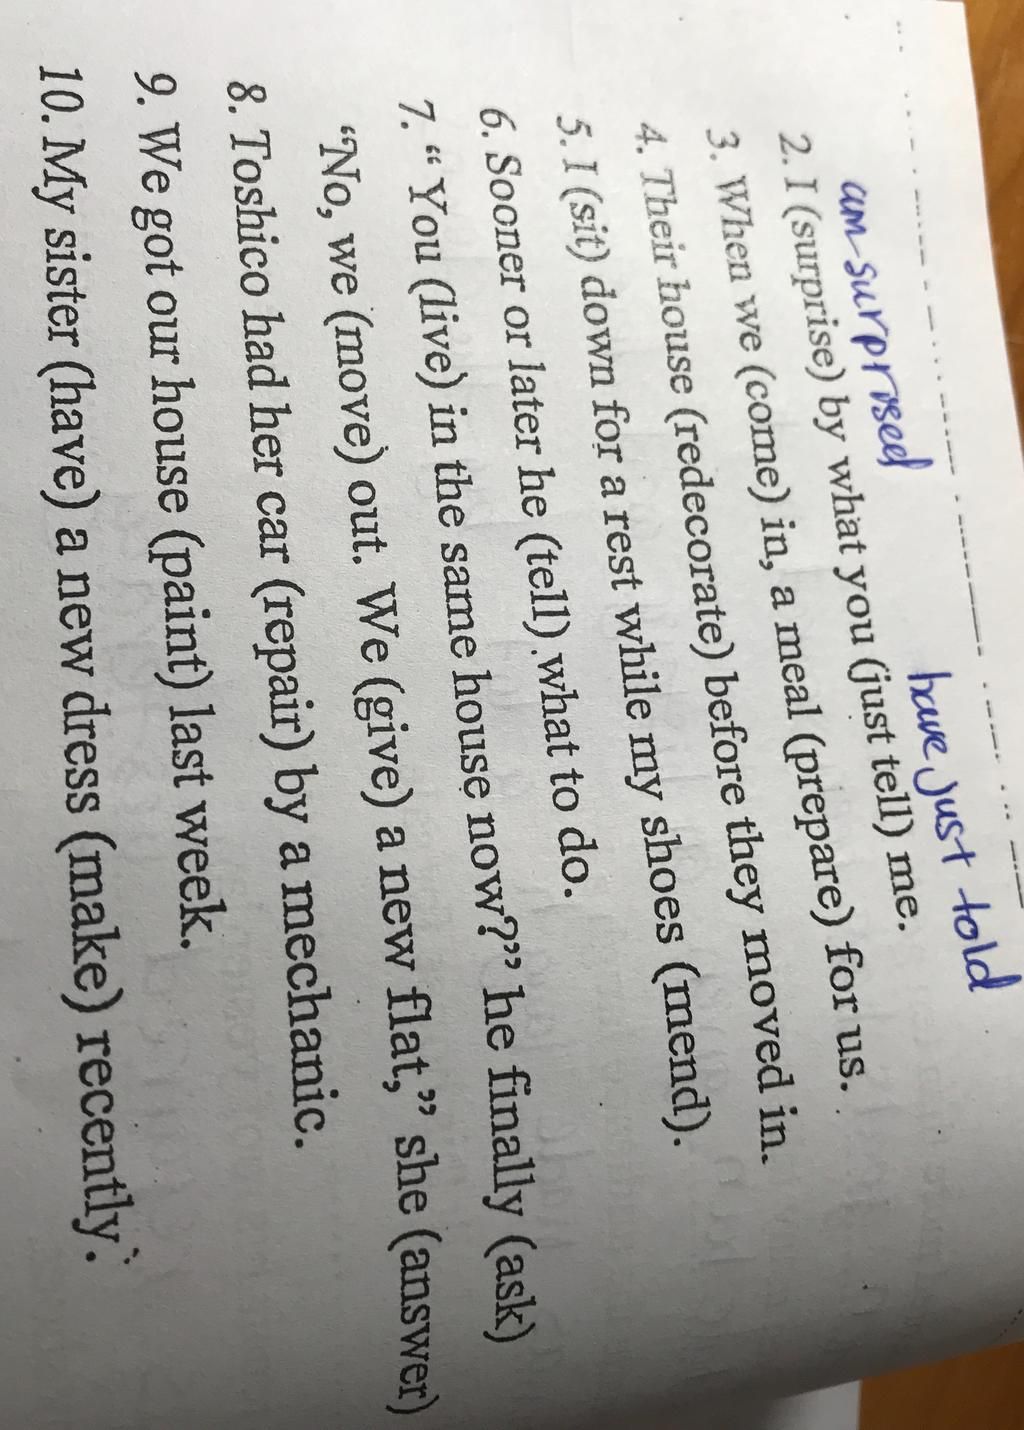 have just told
am surprised
2. I (surprise) by what you (just tell) me.
3. When we (come) in, a meal (prepare) for us.
4. Their house (redecorate) before they moved in.
5. I (sit) down for a rest while my shoes (mend).
6. Sooner or later he (tell) what to do.
7. “You (live) in the same house now?” he finally (ask)
“No, we (move) out. We (give) a new flat,” she (answer)
8. Toshico had her car (repair) by a mechanic.
9. We got our house (paint) last week.
10. My sister (have) a new dress (make) recently.